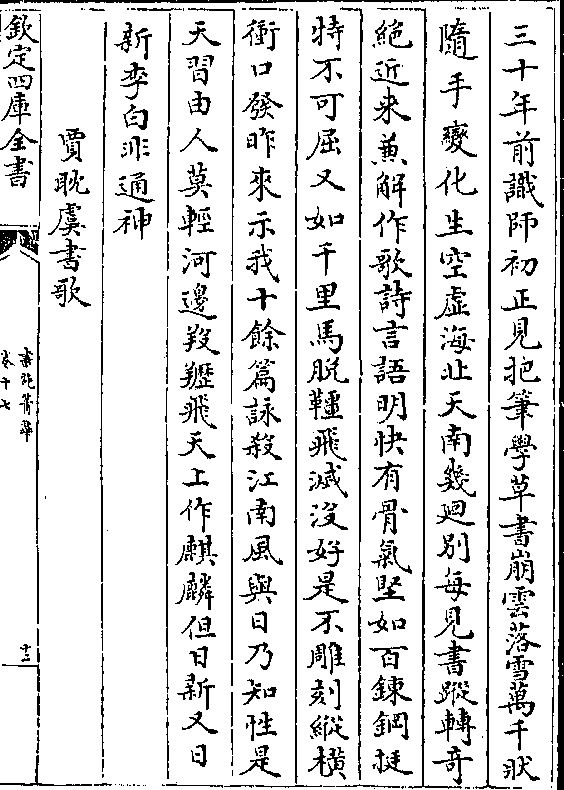 三十年前識師初正見把筆學草書崩雲落雪萬千狀
隨手變化生空虛海北天南幾迴別每見書蹤轉奇
絕近来兼解作歌詩言語明快有骨氣堅如百鍊鋼挺
特不可屈又如千里馬脱韁飛滅没好是不雕刻縱横
衝口發昨來示我十餘篇詠殺江南風與日乃知性是
天習由人莫輕河邊羖䍽飛天上作麒麟但日新又日
新李白非通神
賈耽虞書歌
欽定四庫全書
書苑菁華
卷十七
十二